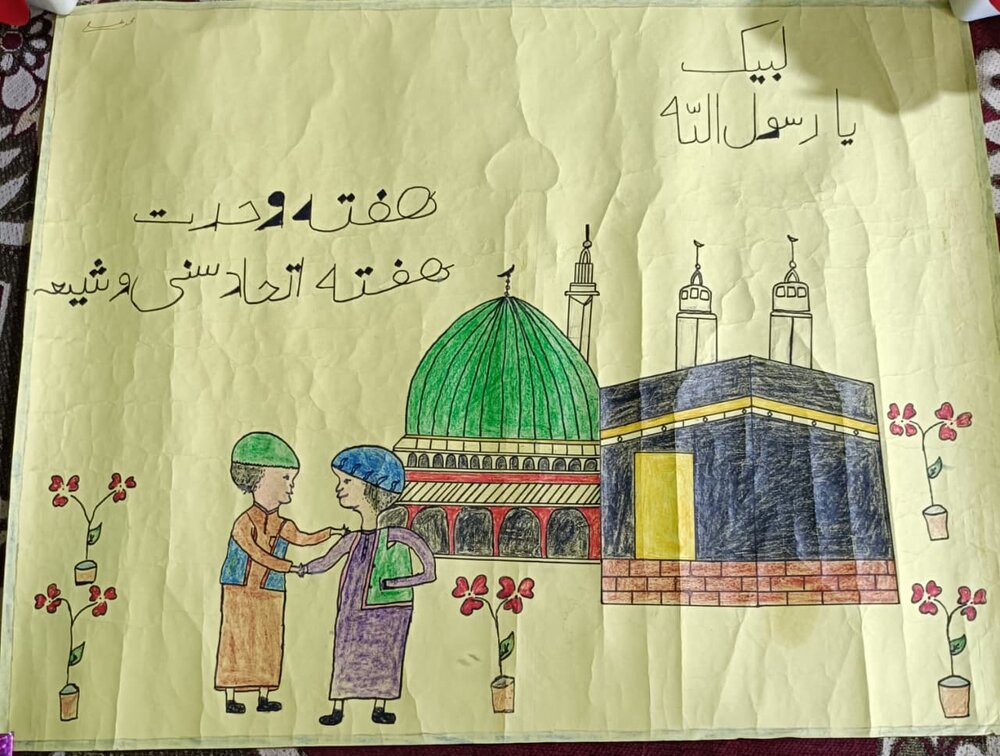 لبیک
یا رسول اللّه
هفته وحدت
هفته اتحاد سنی و شیعه